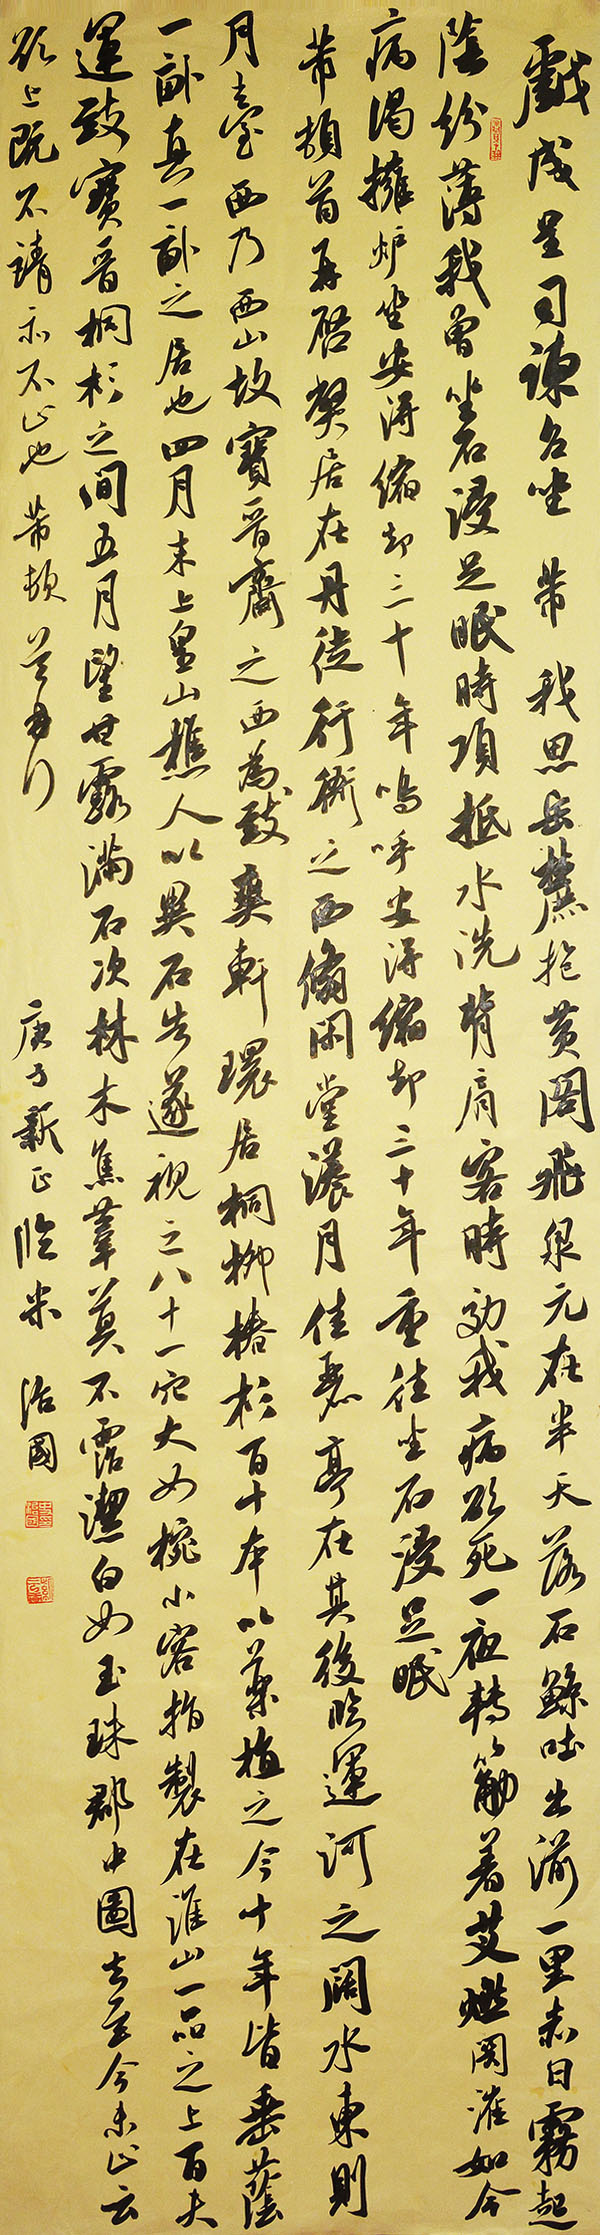 戲成呈司諫台坐 芾 我思岳麓抱黃閣飛泉元在半天落石鯨吐出湔一里赤日霧起
陰紛薄我曾坐石浸足眠時項抵水洗背肩客時効我病欲死一夜轉筋著艾燃関灌如今
病渴擁炉坐安得縮却三十年嗚呼安得縮却三十年重往坐石浸足眠
芾頓首再啓弊居在丹徒行衙之西脩閑堂漾月佳麗亭在其後臨運河之闊水東則
月臺西乃西山故寶晋齋之西為致爽軒環居桐柳椿杉百十本以藥植之今十年皆垂蔭
一畝真一畝之居也四月末上皇山樵人以異石告遂視之八十一穴大如椀小容指製在淮山一品之上百夫
運致寶晋桐杉之間五月望甘露滿石次林木焦葦莫不霑潔白如玉珠郡中圖去至今未止云
欲上既不請亦不止也芾頓首再行
庚子新正臨米 治國